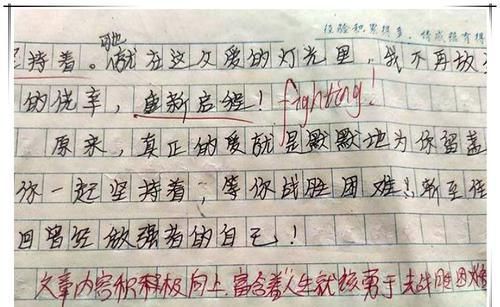 坚持着。就在这父爱的灯光里，我不再放
的侥幸，重新启程！fighting！
原来，真正的爱就是默默地为你留盏
你一起坚持着，等你战胜困难！新至
回曾经做强者的自己！
文章内容积极向上 富含着人生就该勇于去战胜困难